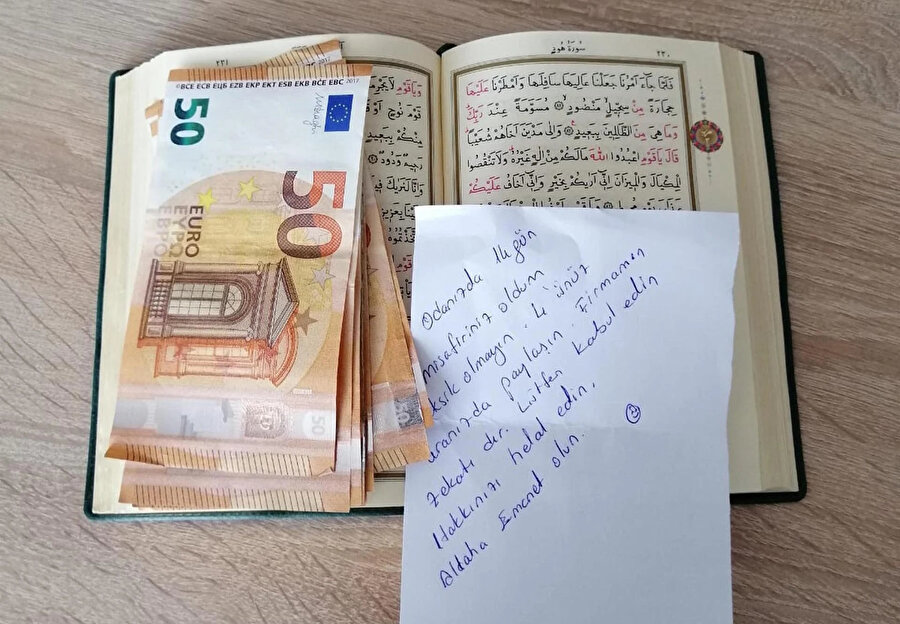 سُورَةُ هُودٍ
٢٣٠
فَلَمَّا جَٓاءَ اَمْرُنَا جَعَلْنَا عَالِيَهَا سَافِلَهَا وَاَمْطَرْنَا عَلَيْهَا
حِجَارَةً مِنْ سِجّ۪يلٍ مَنْضُودٍ مُسَوَّمَةً عِنْدَ رَبِّكَ
وَمَا هِيَ مِنَ الظَّالِم۪ينَ بِبَع۪يدٍ وَاِلٰى مَدْيَنَ اَخَاهُمْ شُعَيْبًا
قَالَ يَا قَوْمِ اعْبُدُوا اللّٰهَ مَا لَكُمْ مِنْ اِلٰهٍ غَيْرُهُ وَلَا تَنْقُصُوا
الْمِكْيَالَ وَالْم۪يزَانَ اِنّ۪ٓي اَرٰيكُمْ بِخَيْرٍ وَاِنّ۪ٓي اَخَافُ عَلَيْكُمْ
٢٣١
وَيَا قَوْمِ
قَوْمَ نُوحٍ اَوْ
مِنْكُمْ بِبَع۪يدٍ
رَح۪يمٌ وَدُودٌ
©BCE ECB ЕЦБ EZB EKP EKT ESB EKB BĊE EBC 2017
50
50
EURO
ΕΥΡΩ
ЕВРО
50
Odanızda 14 gün
misafiriniz oldum
eksik olmayın. 4 ünüz
aranızda paylaşın. Firmamın
zekatı dır. Lütfen kabul edin
Hakkınızı helal edin.
Aldaha Emanet olun.